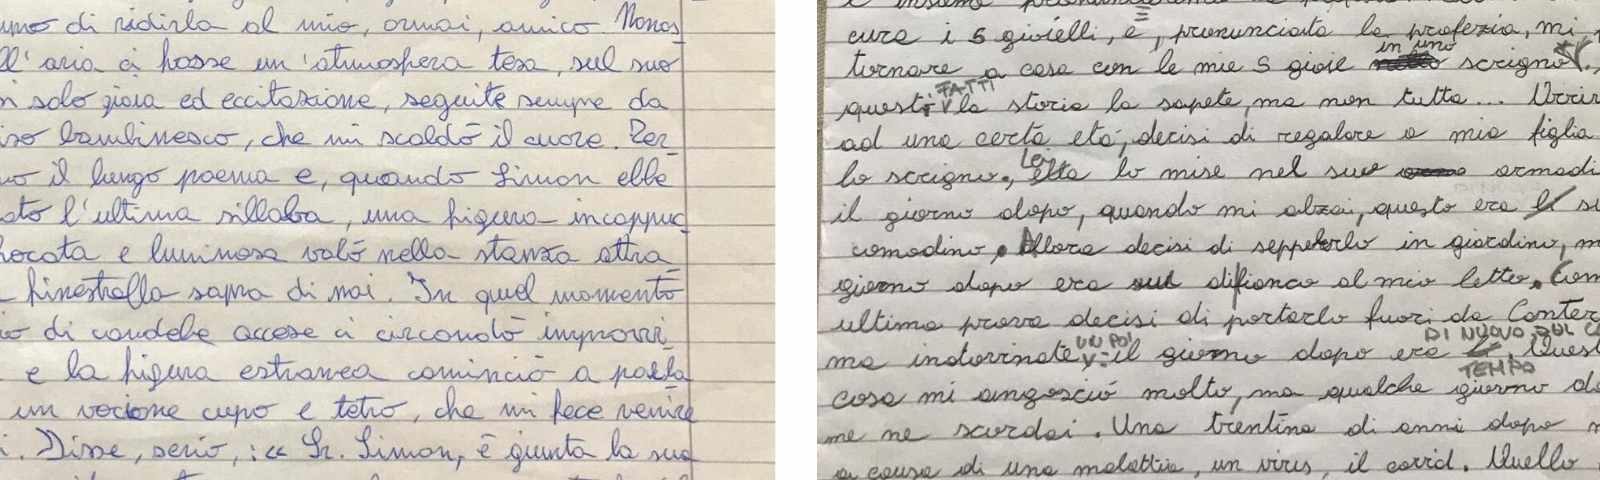 di ridirla al mio, ormai, amico. Nonos
ll'aria ci fosse un'atmosfera tesa, sul suo
solo gioia ed eccitazione, seguite sempre da
iso bambinesco, che mi scaldò il cuore. Ter-
il lungo poema e, quando Simon ebbe
ato l'ultima sillaba, una figura incappuc
e luminosa volò nella stanza attra
finestrella sopra di noi. In quel momento
di candele accese ci circondò improvvi
e la figura estranea cominciò a parla
un vocione cupo e tetro, che mi fece venire
i. Disse, serio, :« Sr. Simon, è giunta la sua
e insieme
cura i 5 gioielli, e, pronunciata la profezia, mi
tornare a casa con le mie 5 gioie in uno scrigno
questi FATTI la storia la sapete, ma non tutta...
ad una certa età, decisi di regalare a mia figlia
lo scrigno. Lei lo mise nel suo armadi
il giorno dopo, quando mi alzai, questo era su
comodino. Allora decisi di seppelirlo in giardino, m
giorno dopo era di fianco al mio letto. Com
ultima prova decisi di portarlo fuori da Canter
ma indovinate un po': il giorno dopo era DI NUOVO SUL
TEMPO Quest
cosa mi angosciò molto, ma qualche giorno do
me ne scordai. Una trentina di anni dopo
a causa di una malattia, un virus, il covid. Quello